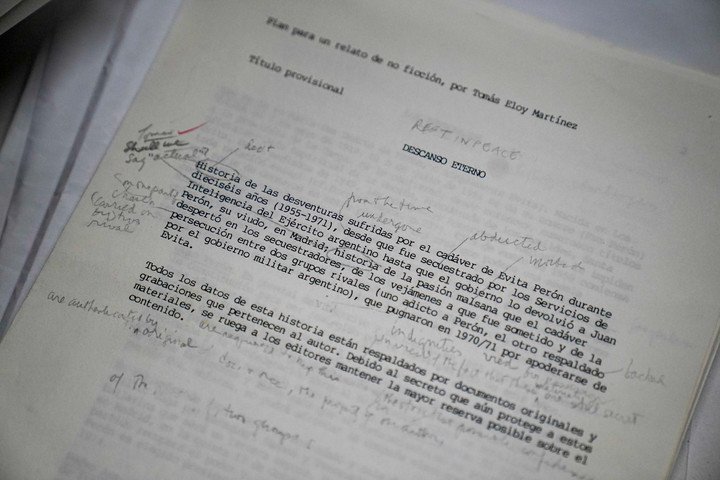 Plan para un relato de no ficción, por Tomás Eloy Martínez
Título provisional
REST IN PEACE
DESCANSO ETERNO
Historia de las desventuras sufridas por el cadáver de Evita Perón durante
dieciséis años (1955-1971), desde que fue secuestrado por los Servicios de
Inteligencia del Ejército argentino hasta que el gobierno lo devolvió a Juan
Perón, su viudo, en Madrid; historia de la pasión malsana que el cadáver
despertó en los secuestradores, de los vejámenes a que fue sometido y de la
persecución entre dos grupos rivales (uno adicto a Perón, el otro respaldado
por el gobierno militar argentino), que pugnaron en 1970/71 por apoderarse de
Evita.
Todos los datos de esta historia están respaldados por documentos originales y
grabaciones que pertenecen al autor. Debido al secreto que aún protege a estos
materiales, se ruega a los editores mantener la mayor reserva posible sobre el
contenido.
Tomas
Should we
say "actual"?
from the time
undergone
abducted
morbid
rival
backed
are authenticated by
original
two groups